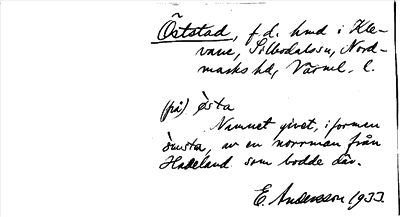 Öststad, f.d. hmd i Kle-
vane, Silbodalssn, Nord-
marks hd, Värml. l.
(på) östa
Namnet givet, i formen
ömsta, av en norrman från
Hadeland som bodde där.
E. Andersson 1933.